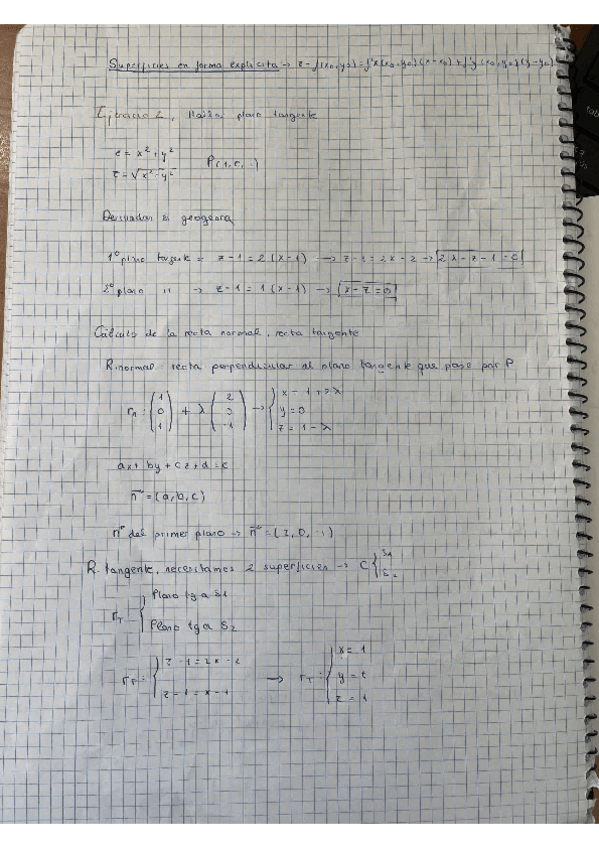 Superficies en forma explicita → z - f(x0, y0) = f'x(x0, y0)(x-x0) + f'y(x0, y0)(y-y0)
Ejercicio 2, plano tangente
z = x² + y²
z = √x² - y² P(1, 0, 1)
Derivadas en geogebra
1º plano tangente = z - 1 = 2(x - 1) → z - 1 = 2x - 2 → 2x - z - 1 = 0
2º plano " → z - 1 = 1(x - 1) → x - z = 0
Cálculo de la recta normal, recta tangente
R. normal: recta perpendicular al plano tangente que pase por P
rn: (1 0 1) + λ (2 0 -1) → { x = 1 + 2λ
y = 0
z = 1 - λ
ax + by + cz + d = 0
n = (a, b, c)
n del primer plano → n = (2, 0, -1)
R. tangente, necesitamos 2 superficies → C { S1
S2
rT = { Plano tg a S1
Plano tg a S2
rT = { z - 1 = 2x - 2
z - 1 = x - 1
→ rT: { x = 1
y = t
z = 1